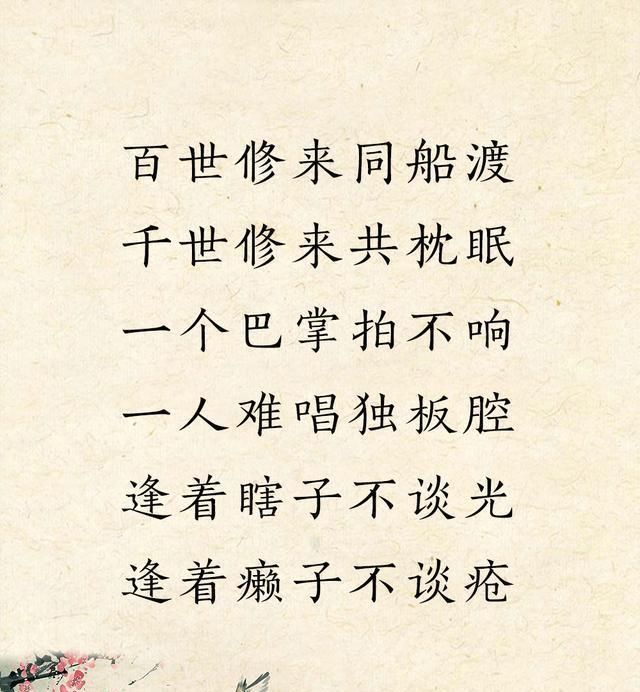 百世修来同船渡
千世修来共枕眠
一个巴掌拍不响
一人难唱独板腔
逢着瞎子不谈光
逢着癞子不谈疮